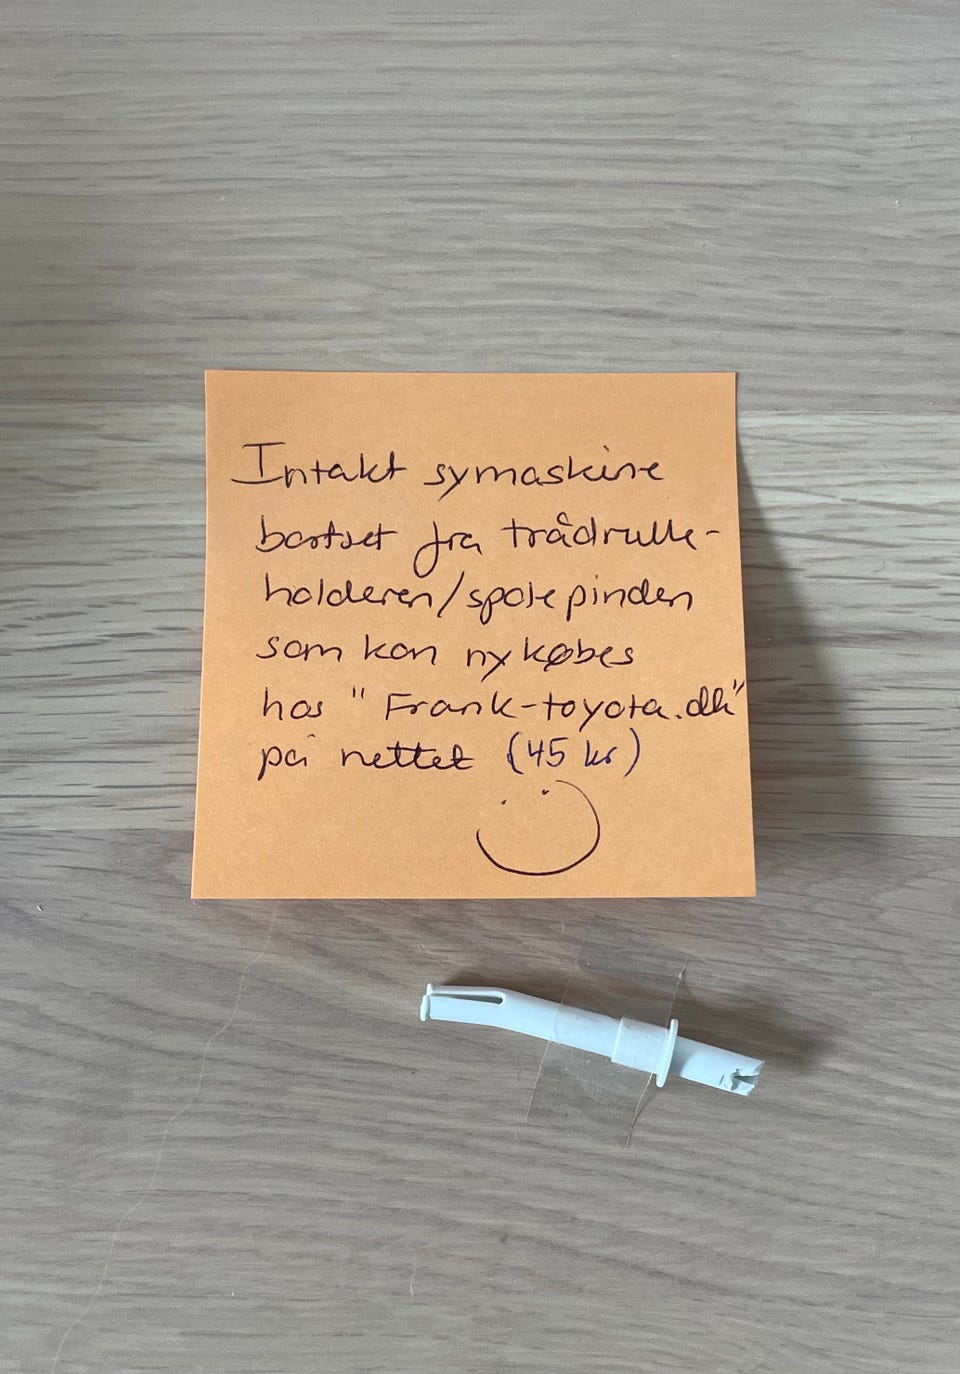 Intakt symaskine
bortset fra trådrulle-
holderen/spolepinden
som kan nykøbes
hos "Frank-toyota.dk"
på nettet (45 kr)